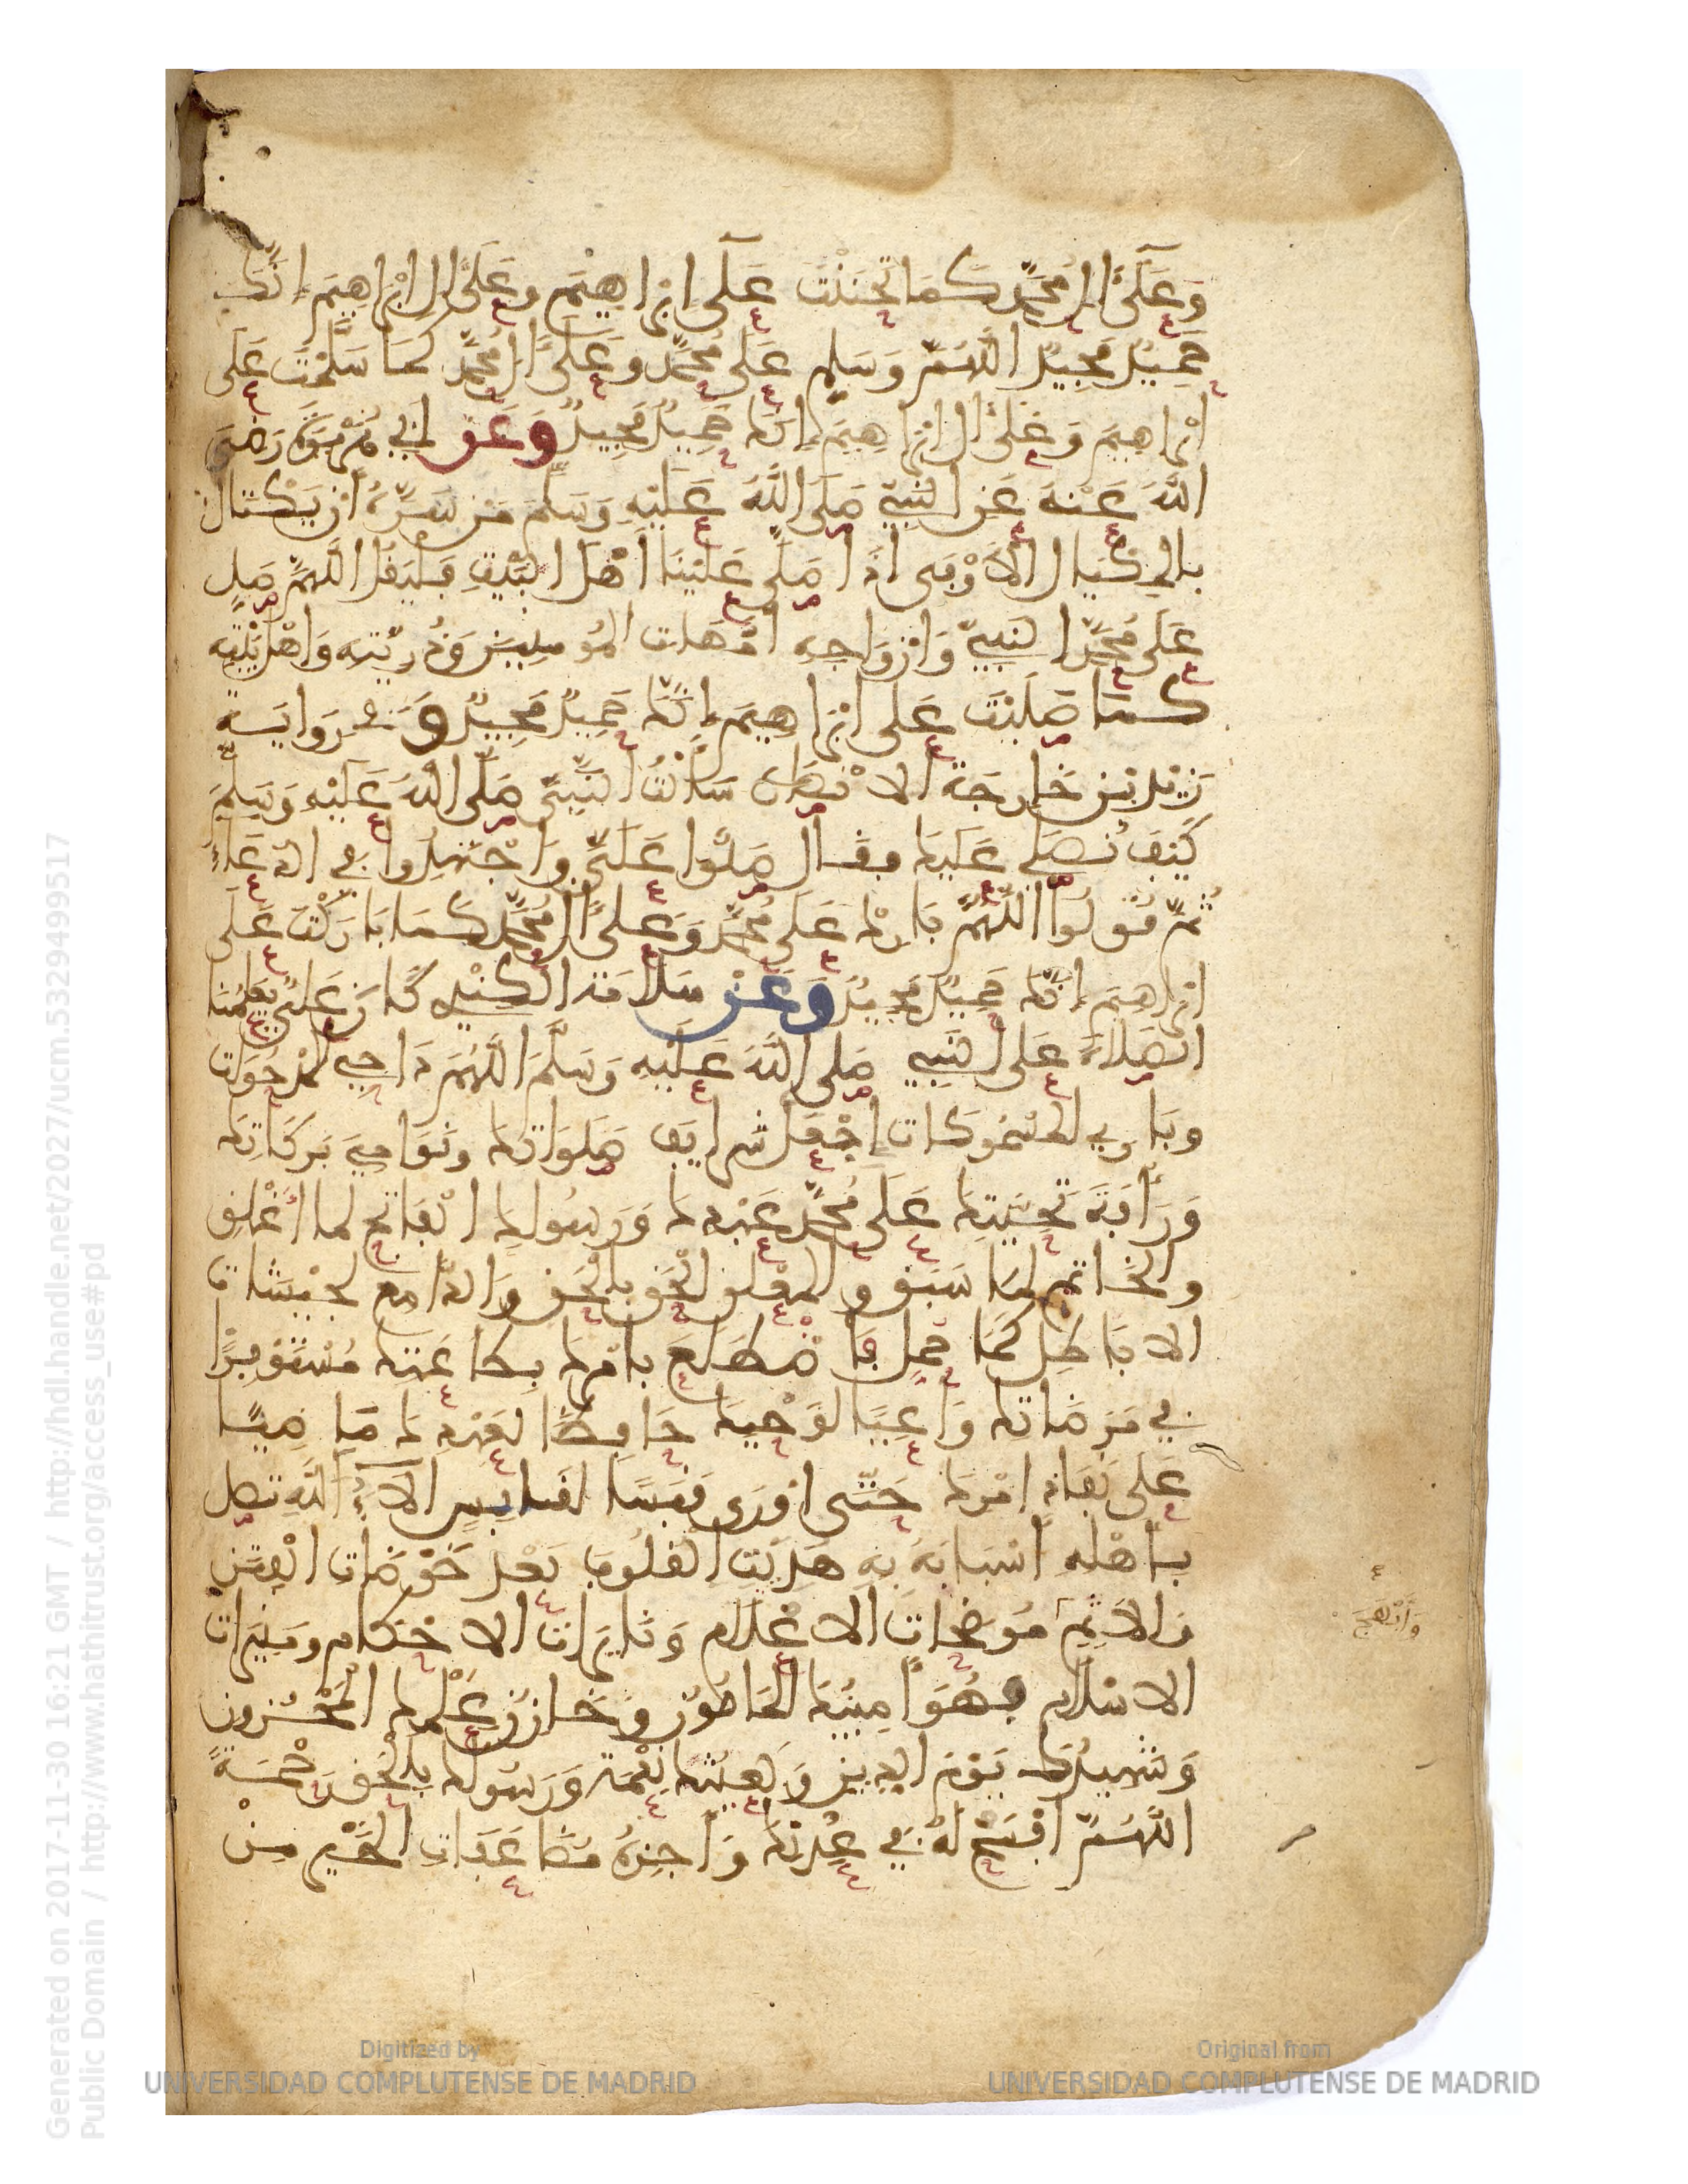 وَعَلَىٰ ءَالِ مُحَمَّدٍ كَمَا تَحَنَّنْتَ عَلَى إِبْرَاهِيمَ وَعَلَىٰ ءَالِ إِبْرَاهِيمَ إِنَّكَ
حَمِيدٌ مَجِيدٌ اللَّهُمَّ وَسَلِّمْ عَلَى مُحَمَّدٍ وَعَلَىٰ ءَالِ مُحَمَّدٍ كَمَا سَلَّمْتَ عَلَى
إِبْرَاهِيمَ وَعَلَىٰ ءَالِ إِبْرَاهِيمَ إِنَّكَ حَمِيدٌ مَجِيدٌ وَعَنْ أَبِي هُرَيْرَةَ رَضِيَ
اللَّهُ عَنْهُ عَنِ النَّبِيِّ صَلَّى اللَّهُ عَلَيْهِ وَسَلَّمَ مَنْ سَرَّهُ أَنْ يَكْتَالَ
بِالمِكْيَالِ الأَوْفَى إِذَا صَلَّى عَلَيْنَا أَهْلَ البَيْتِ فَلْيَقُلْ اللَّهُمَّ صَلِّ
عَلَى مُحَمَّدٍ النَّبِيِّ وَأَزْوَاجِهِ أُمَّهَاتِ المُومِنِينَ وَذُرِّيَّتِهِ وَأَهْلِ بَيْتِهِ
كَمَا صَلَّيْتَ عَلَى إِبْرَاهِيمَ إِنَّكَ حَمِيدٌ مَجِيدٌ وَفِي رِوَايَةِ
زَيْدِ بْنِ خَارِجَةَ الأَنْصَارِي سَأَلْتُ النَّبِيَّ صَلَّى اللَّهُ عَلَيْهِ وَسَلَّمَ
كَيْفَ نُصَلِّي عَلَيْكَ فَقَالَ صَلُّوا عَلَيَّ وَاجْتَهِدُوا فِي الدُّعَاءِ
ثُمَّ قُولُوا اللَّهُمَّ بَارِكْ عَلَى مُحَمَّدٍ وَعَلَىٰ ءَالِ مُحَمَّدٍ كَمَا بَارَكْتَ عَلَى
إِبْرَاهِيمَ إِنَّكَ حَمِيدٌ مَجِيدٌ وَعَنْ سَلَامَةَ الكِنْدِي كَانَ عَلِيٌّ يُعَلِّمُنَا
الصَّلَاةَ عَلَى النَّبِيِّ صَلَّى اللَّهُ عَلَيْهِ وَسَلَّمَ اللَّهُمَّ دَاحِيَ المَدْحُوَّاتِ
وَبَارِي المَسْمُوكَاتِ اجْعَلْ شَرَايِفَ صَلَوَاتِكَ وَنَوَامِيَ بَرَكَاتِكَ
وَرَأْفَةَ تَحَنُّنِكَ عَلَى مُحَمَّدٍ عَبْدِكَ وَرَسُولِكَ الْفَاتِحِ لِمَا أُغْلِقَ
وَالخَاتِمِ لِمَا سَبَقَ وَالمُعْلِنِ الْحَقَّ بِالْحَقِّ وَالدَّامِغِ لِجَيْشَاتِ
الابَاطِلِ كَمَا حُمِّلَ فَاضْطَلَعَ بِأَمْرِكَ بِطَاعَتِكَ مُسْتَوْفِزًا
فِي مَرْضَاتِكَ وَاعِيًا لِوَحْيِكَ حَافِظًا لِعَهْدِكَ مَاضِيًا
عَلَى نَفَاذِ أَمْرِكَ حَتَّى أَوْرَى قَبَسًا لِقَابِسٍ ءَالَاءُ اللَّهِ تَصِلُ
بِأَهْلِهِ أَسْبَابَهُ بِهِ هُدِيَتِ القُلُوبُ بَعْدَ خَوْضَاتِ الْفِتَنِ
وَالإِثْمِ مُوضِحَاتِ الاعْلَامِ وَنَايِرَاتِ الاحْكَامِ وَمُنِيرَاتِ
وَأَبْهَجَ
الاسْلَامِ فَهُوَ أَمِينُكَ المَامُونُ وَخَازِنُ عِلْمِكَ الْمَخْزُونِ
وَشَهِيدُكَ يَوْمَ الدِّينِ وَبَعِيثُكَ نِعْمَةً وَرَسُولُكَ بِالْحَقِّ رَحْمَةً
اللَّهُمَّ افْسَحْ لَهُ فِي عَدْنِكَ وَاجْزِهِ مُضَاعَفَاتِ الخَيْرِ مِنْ
Generated on 2017-11-30 16:21 GMT / http://hdl.handle.net/2027/ucm.5329499517
Public Domain / http://www.hathitrust.org/access_use#pd
Digitized by
UNIVERSIDAD COMPLUTENSE DE MADRID
Original from
UNIVERSIDAD COMPLUTENSE DE MADRID